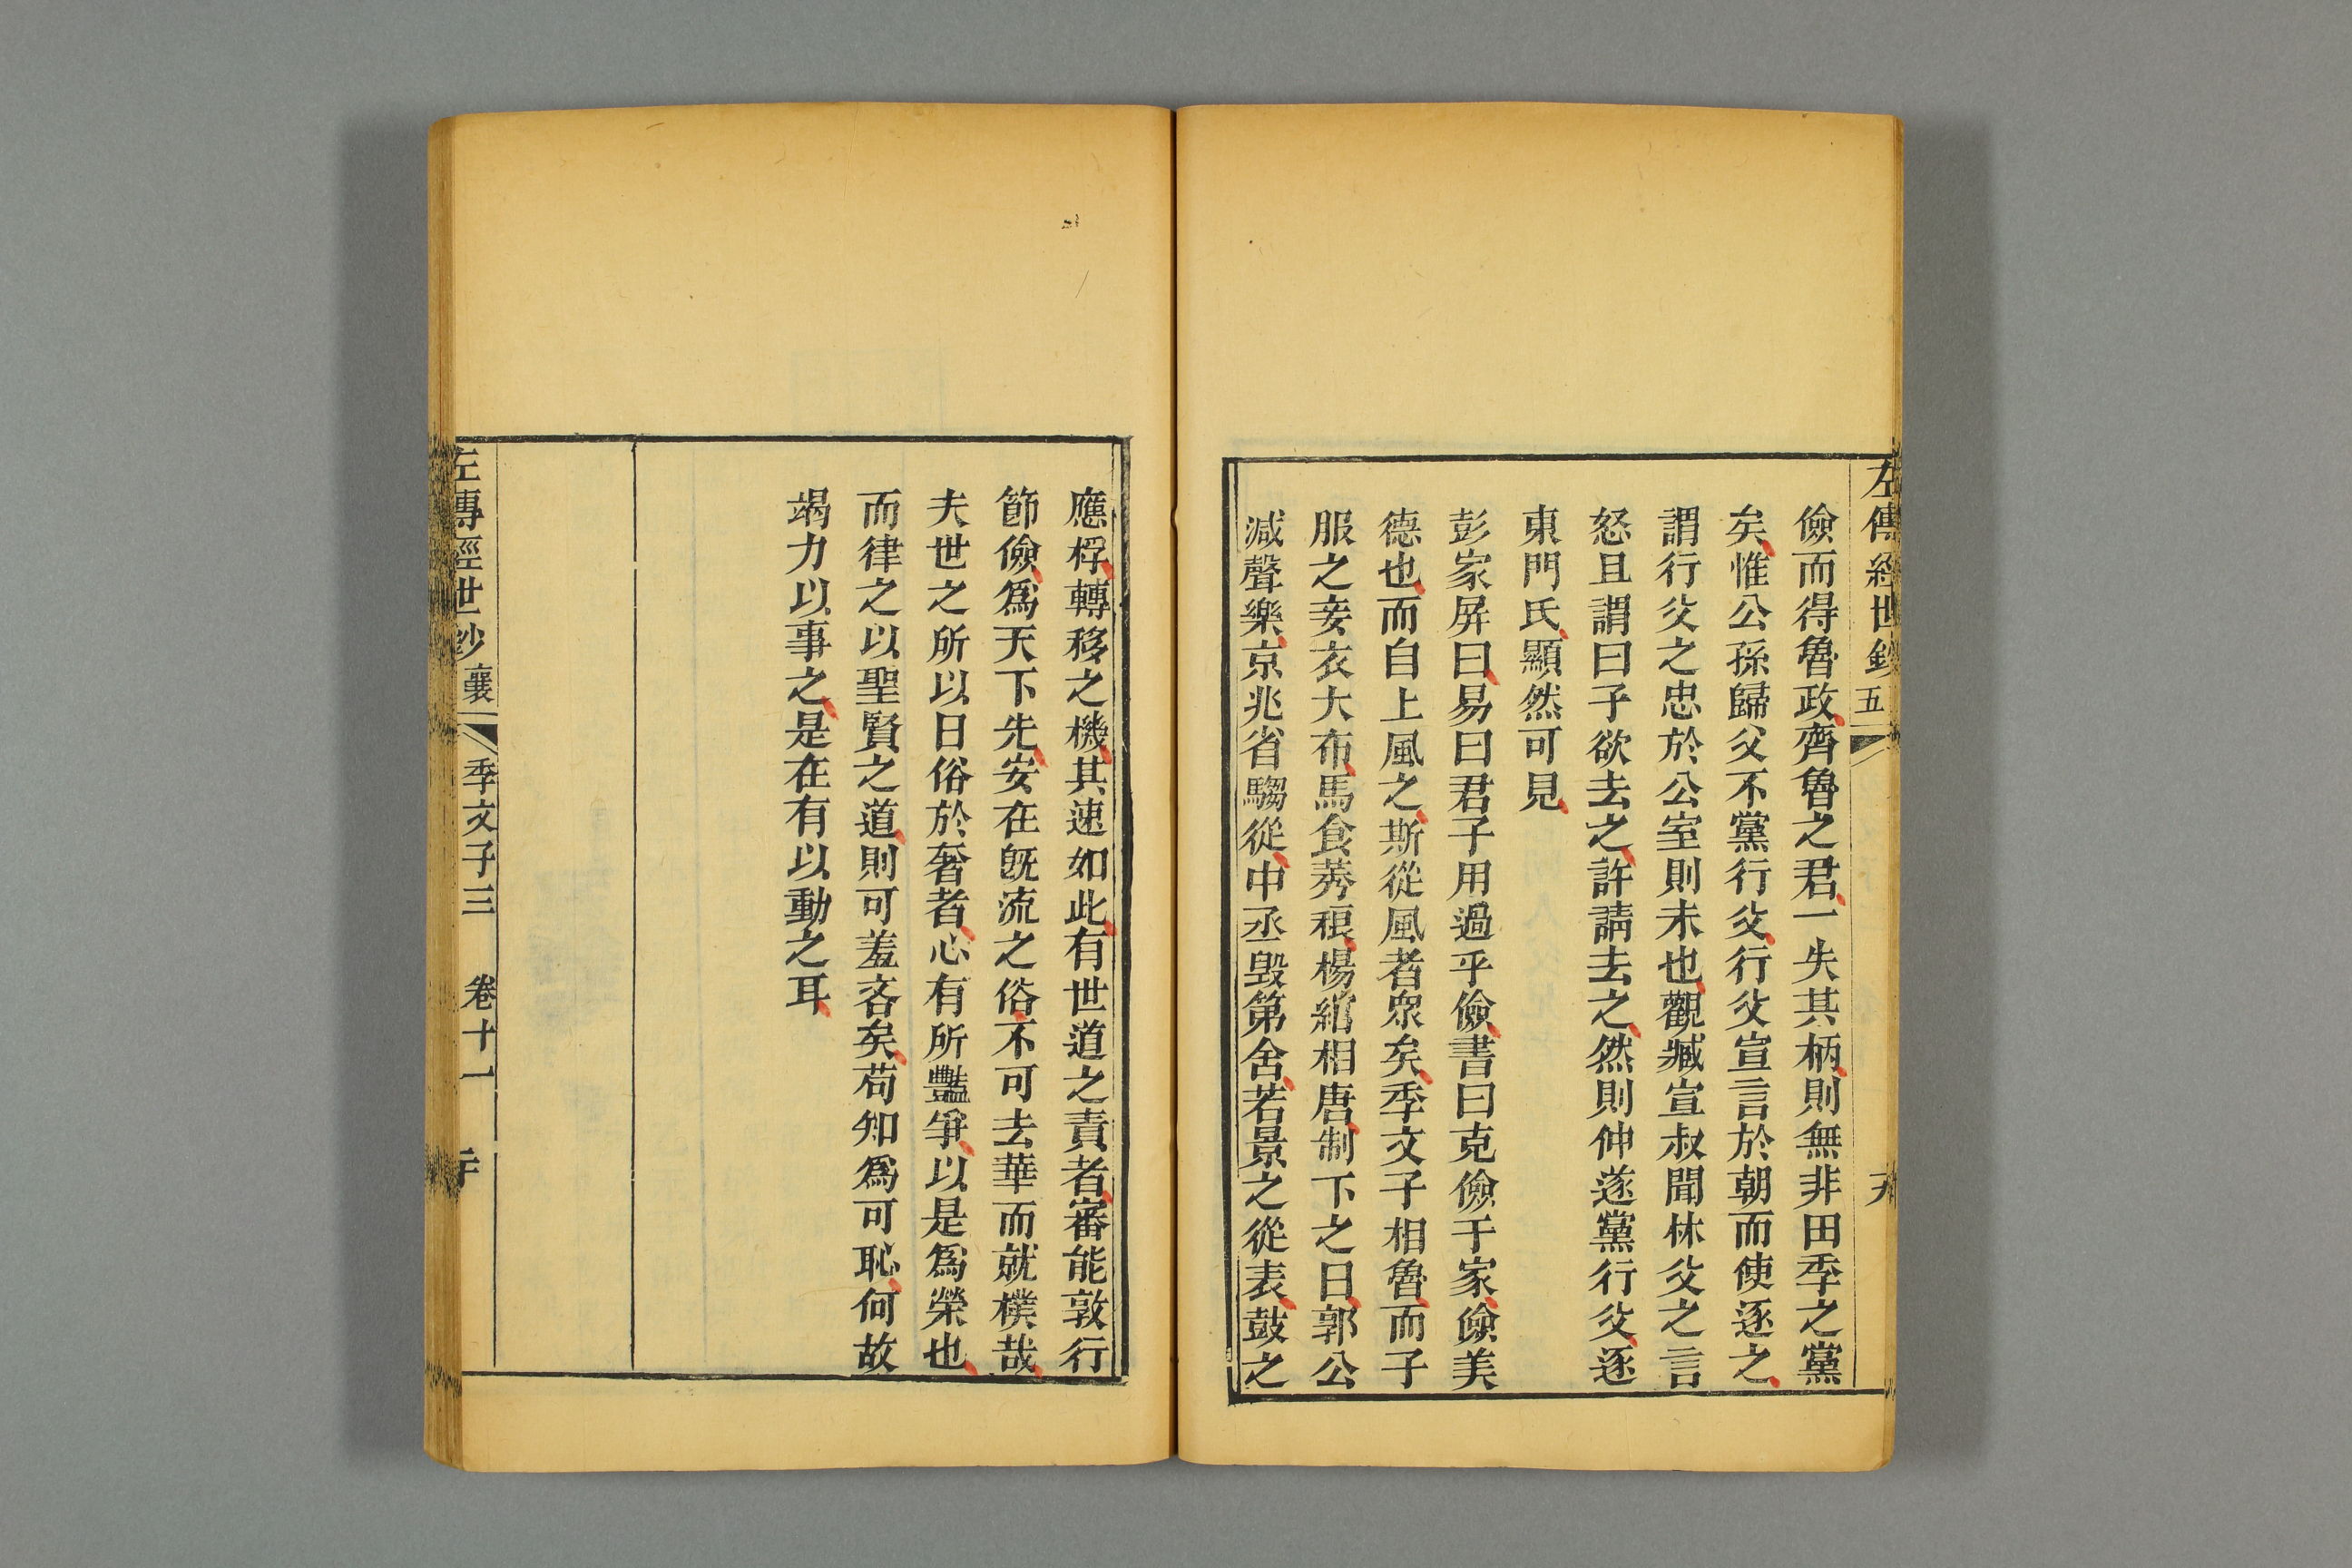 左傳經世鈔 五
儉而得魯政齊魯之君一失其柄則無非田季之黨
矣惟公孫歸父不黨行父行父宣言於朝而使逐之
謂行父之忠於公室則未也觀臧宣叔聞林父之言
怒且謂曰子欲去之許請去之然則仲遂黨行父逐
東門氏顯然可見
彭家屏曰易曰君子用過乎儉書曰克儉于家儉美
德也而自上風之斯從風者衆矣季文子相魯而子
服之妾衣大布馬食莠稂楊綰相唐制下之日郭公
減聲樂京兆省騶從中丞毀第舍若景之從表鼓之
應桴轉移之機其速如此有世道之責者審能敦行
節儉為天下先安在旣流之俗不可去華而就樸哉
夫世之所以日俗於奢者心有所豔爭以是為榮也
而律之以聖賢之道則可羞吝矣苟知為可恥何故
竭力以事之是在有以動之耳
左傳經世鈔 襄 季文子三 卷十一